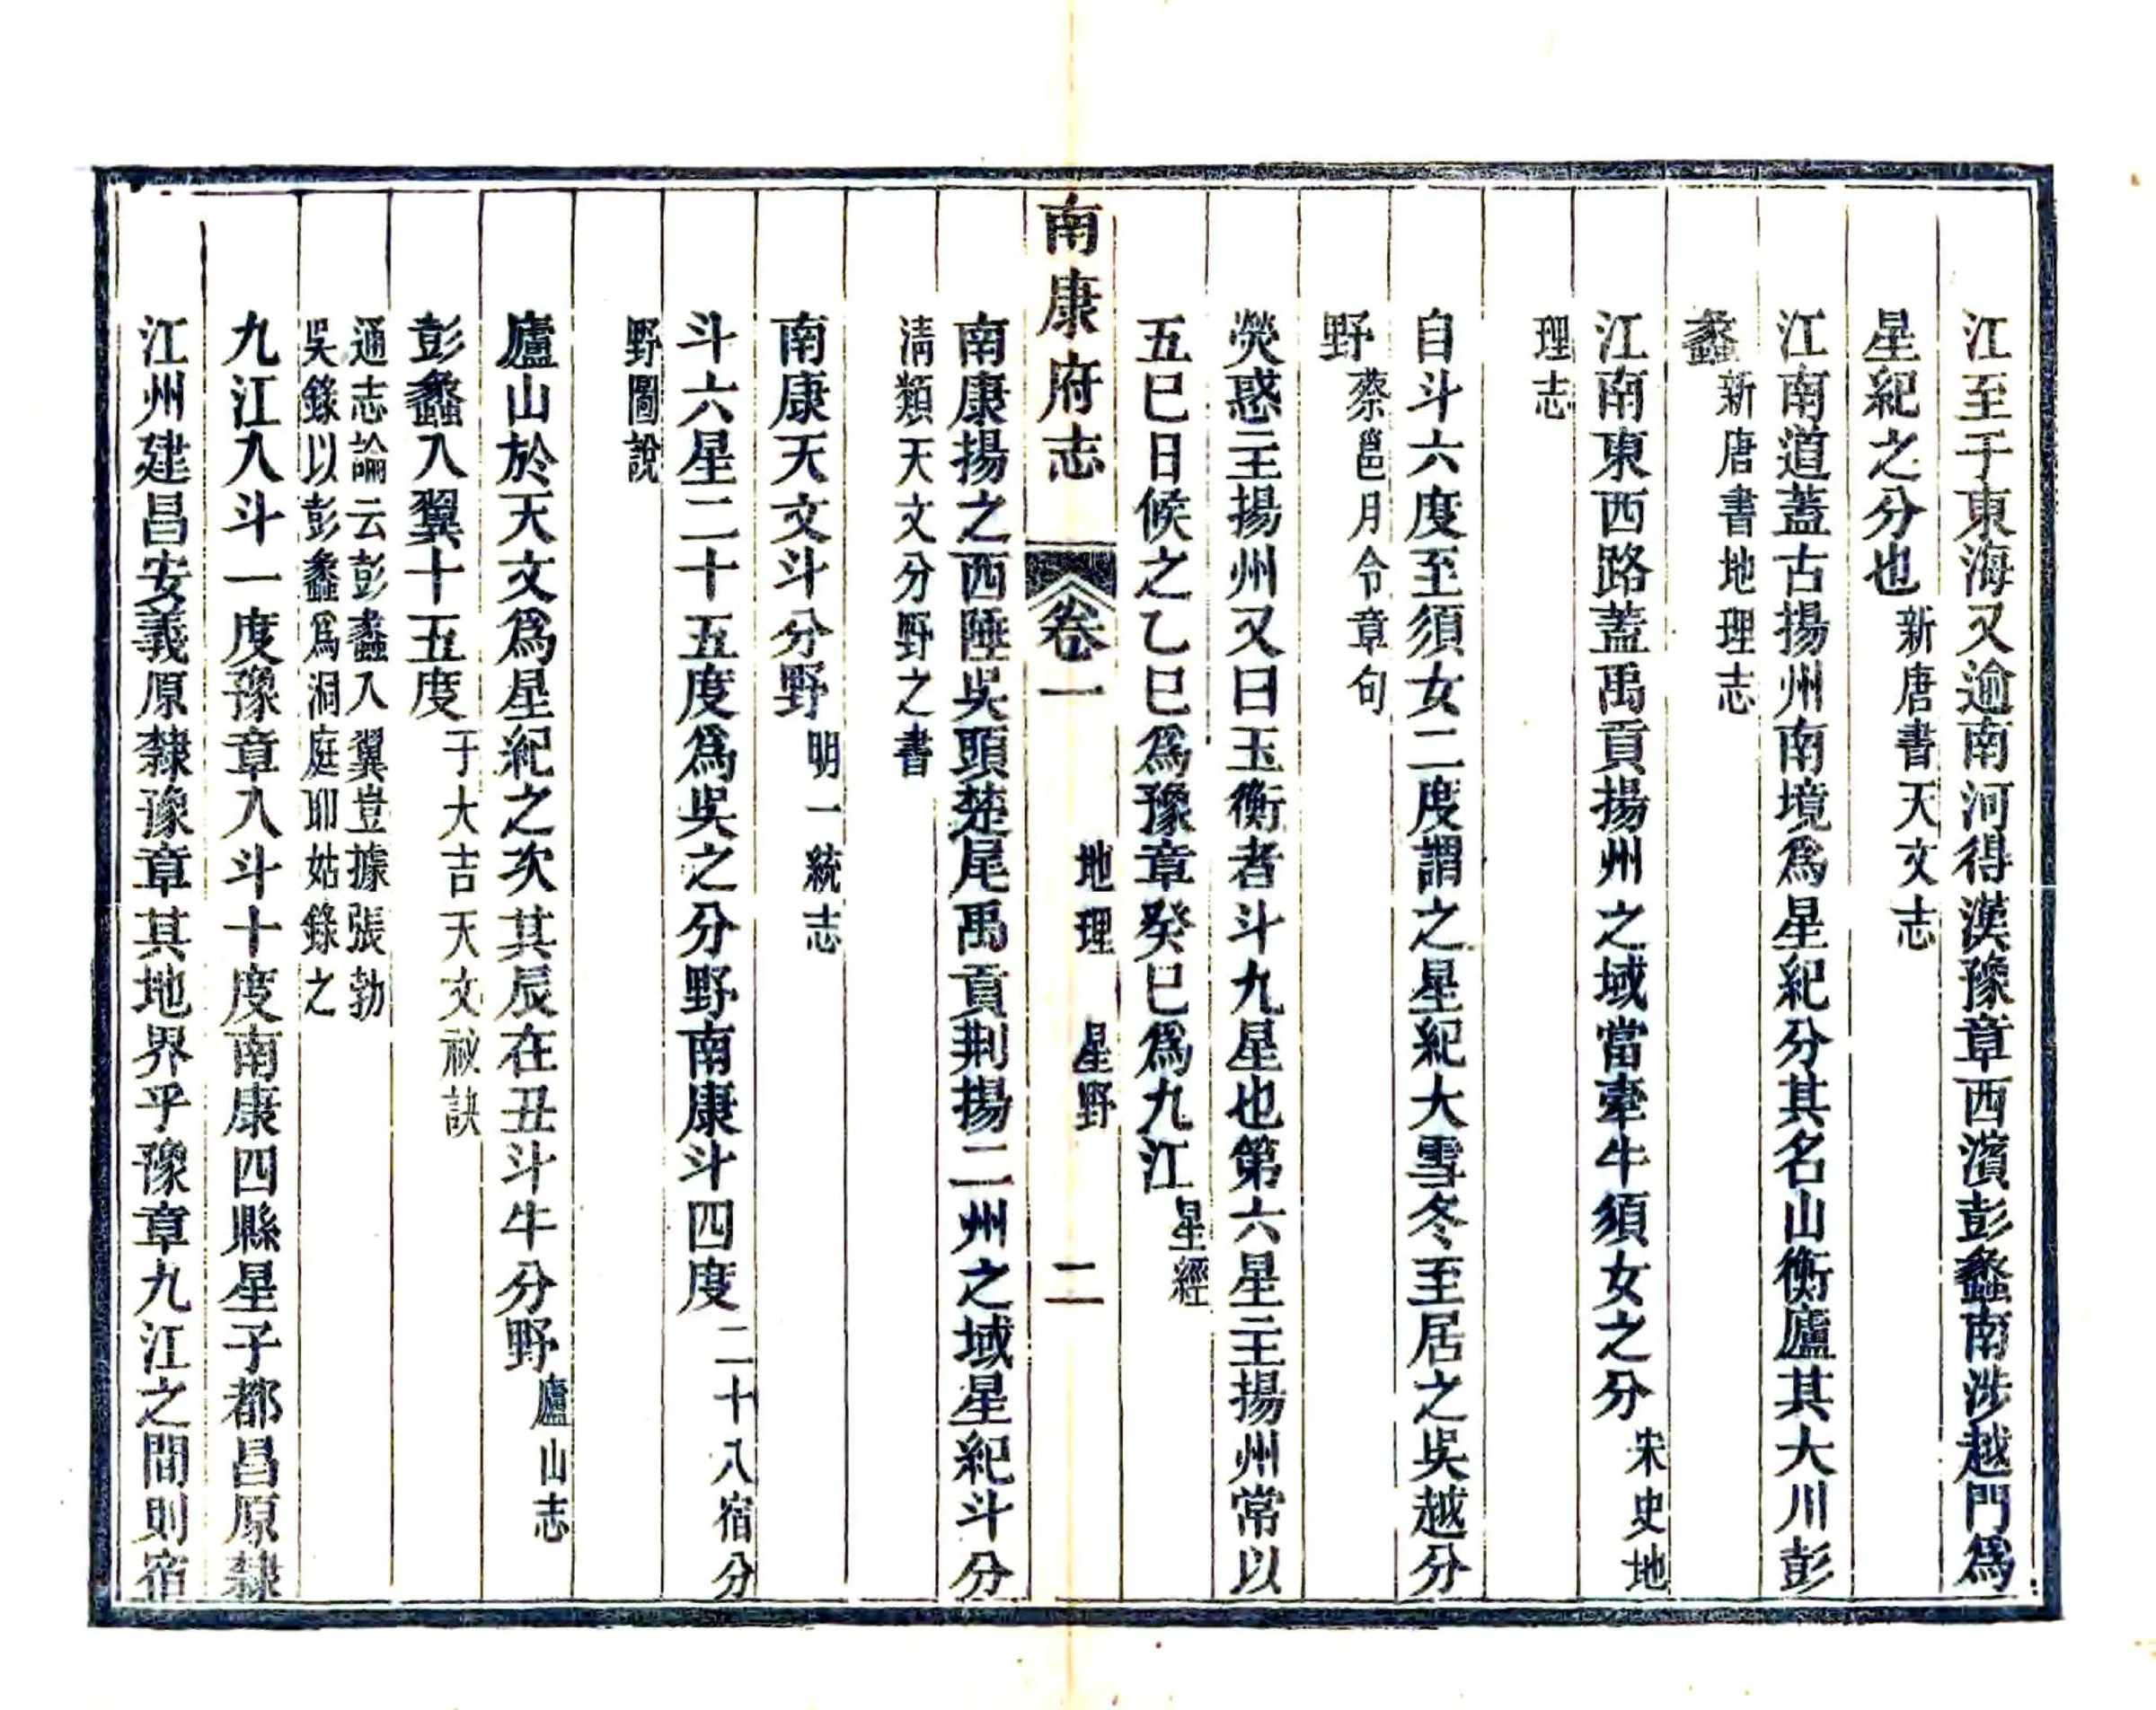 江至于東海又逾南河得漢豫章西濱彭蠡南涉越門爲
星紀之分也新唐書天文志
江南道蓋古揚州南境爲星紀分其名山衡廬其大川彭
蠡新唐書地理志
江南東西路蓋禹貢揚州之域當牽牛須女之分宋史地
理志
自斗六度至須女二度謂之星紀大雪冬至居之吳越分
野蔡邕月令章句
熒惑主揚州又曰玉衡者斗九星也第六星主揚州常以
五巳日候之乙巳爲豫章癸巳爲九江星經
南康府志 卷一 地理 星野 二
南康揚之西陲吳頭楚尾禹貢荆揚二州之域星紀斗分
清類天文分野之書
南康天文斗分野明一統志
斗六星二十五度爲吳之分野南康斗四度二十八宿分
野圖說
廬山於天文爲星紀之次其辰在丑斗牛分野廬山志
彭蠡入翼十五度于大吉天文祕訣
通志論云彭蠡入翼豈據張勃
吳錄以彭蠡爲洞庭耶姑錄之
九江入斗一度豫章入斗十度南康四縣星子都昌原隸
江州建昌安義原隸豫章其地界乎豫章九江之間則宿